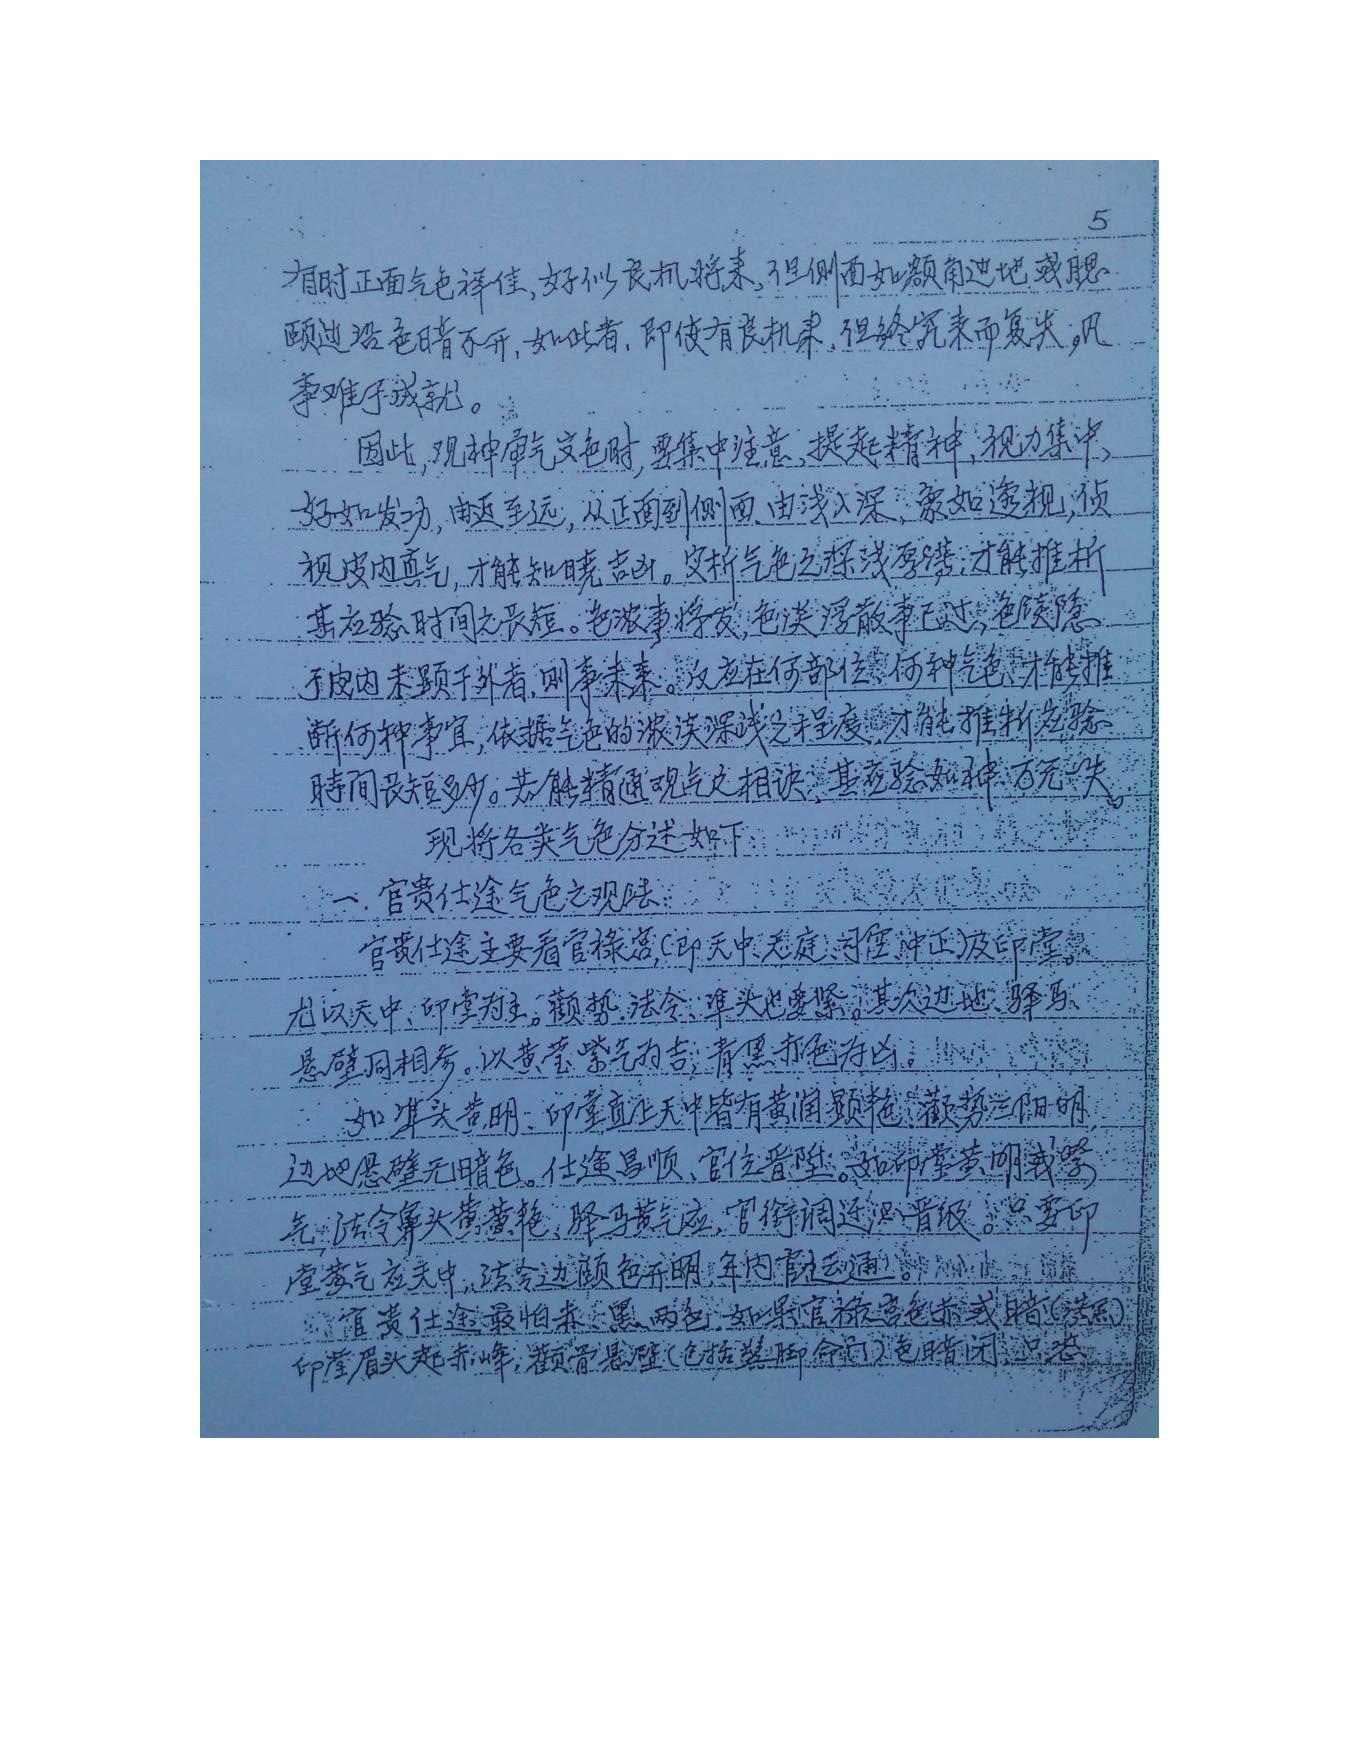 5
有时正面气色祥佳，好似良机将来，但侧面如额角边地或腮
颐边沿色暗不开，如此者，即使有良机来，但终究来而复失，凡
事难于成就。
因此，观神审气文色时，要集中注意、提起精神，视力集中，
好如发功，由近至远，从正面到侧面，由浅入深，象如透视，侦
视皮内真气，才能知晓吉凶。安析气色之深浅厚薄，才能推析
其应验时间之长短。色浓事将发，色淡浮散事已过，色隐
于皮内未显于外者，则事未来。反应在何部位、何种气色，才能推
断何种事宜，依据气色的浓淡深浅之程度，才能推断应验
時间长短多少。若能精通观气之相诀，其应验如神，万无一失。
现将各类气色分述如下
一．官贵仕途气色之观法
官贵仕途主要看官禄宫，(即天中、天庭、司空、中正)及印堂。
尤以天中、印堂为主。颧势、法令、準头也要紧。其次边地、驿马、
悬壁同相参。以黄莹紫气为吉，青黑赤色为凶。
如準头黄明、印堂直上天中皆有黄润显艳，颧势三阳明，
边地悬壁无暗色。仕途昌顺、官位晋陞。如印堂黄明或紫
气，法令鼻头黄黄艳，驿马黄气应，官衔调迁晋级。只要印
堂黄气应天中，法令边颜色开明，年内官途通。
官贵仕途最怕赤、黑两色，如果官禄宫色赤或暗(淡黑)
印堂眉头起赤峰，颧骨悬壁(包括鬓脚命门)色暗闭，只恐